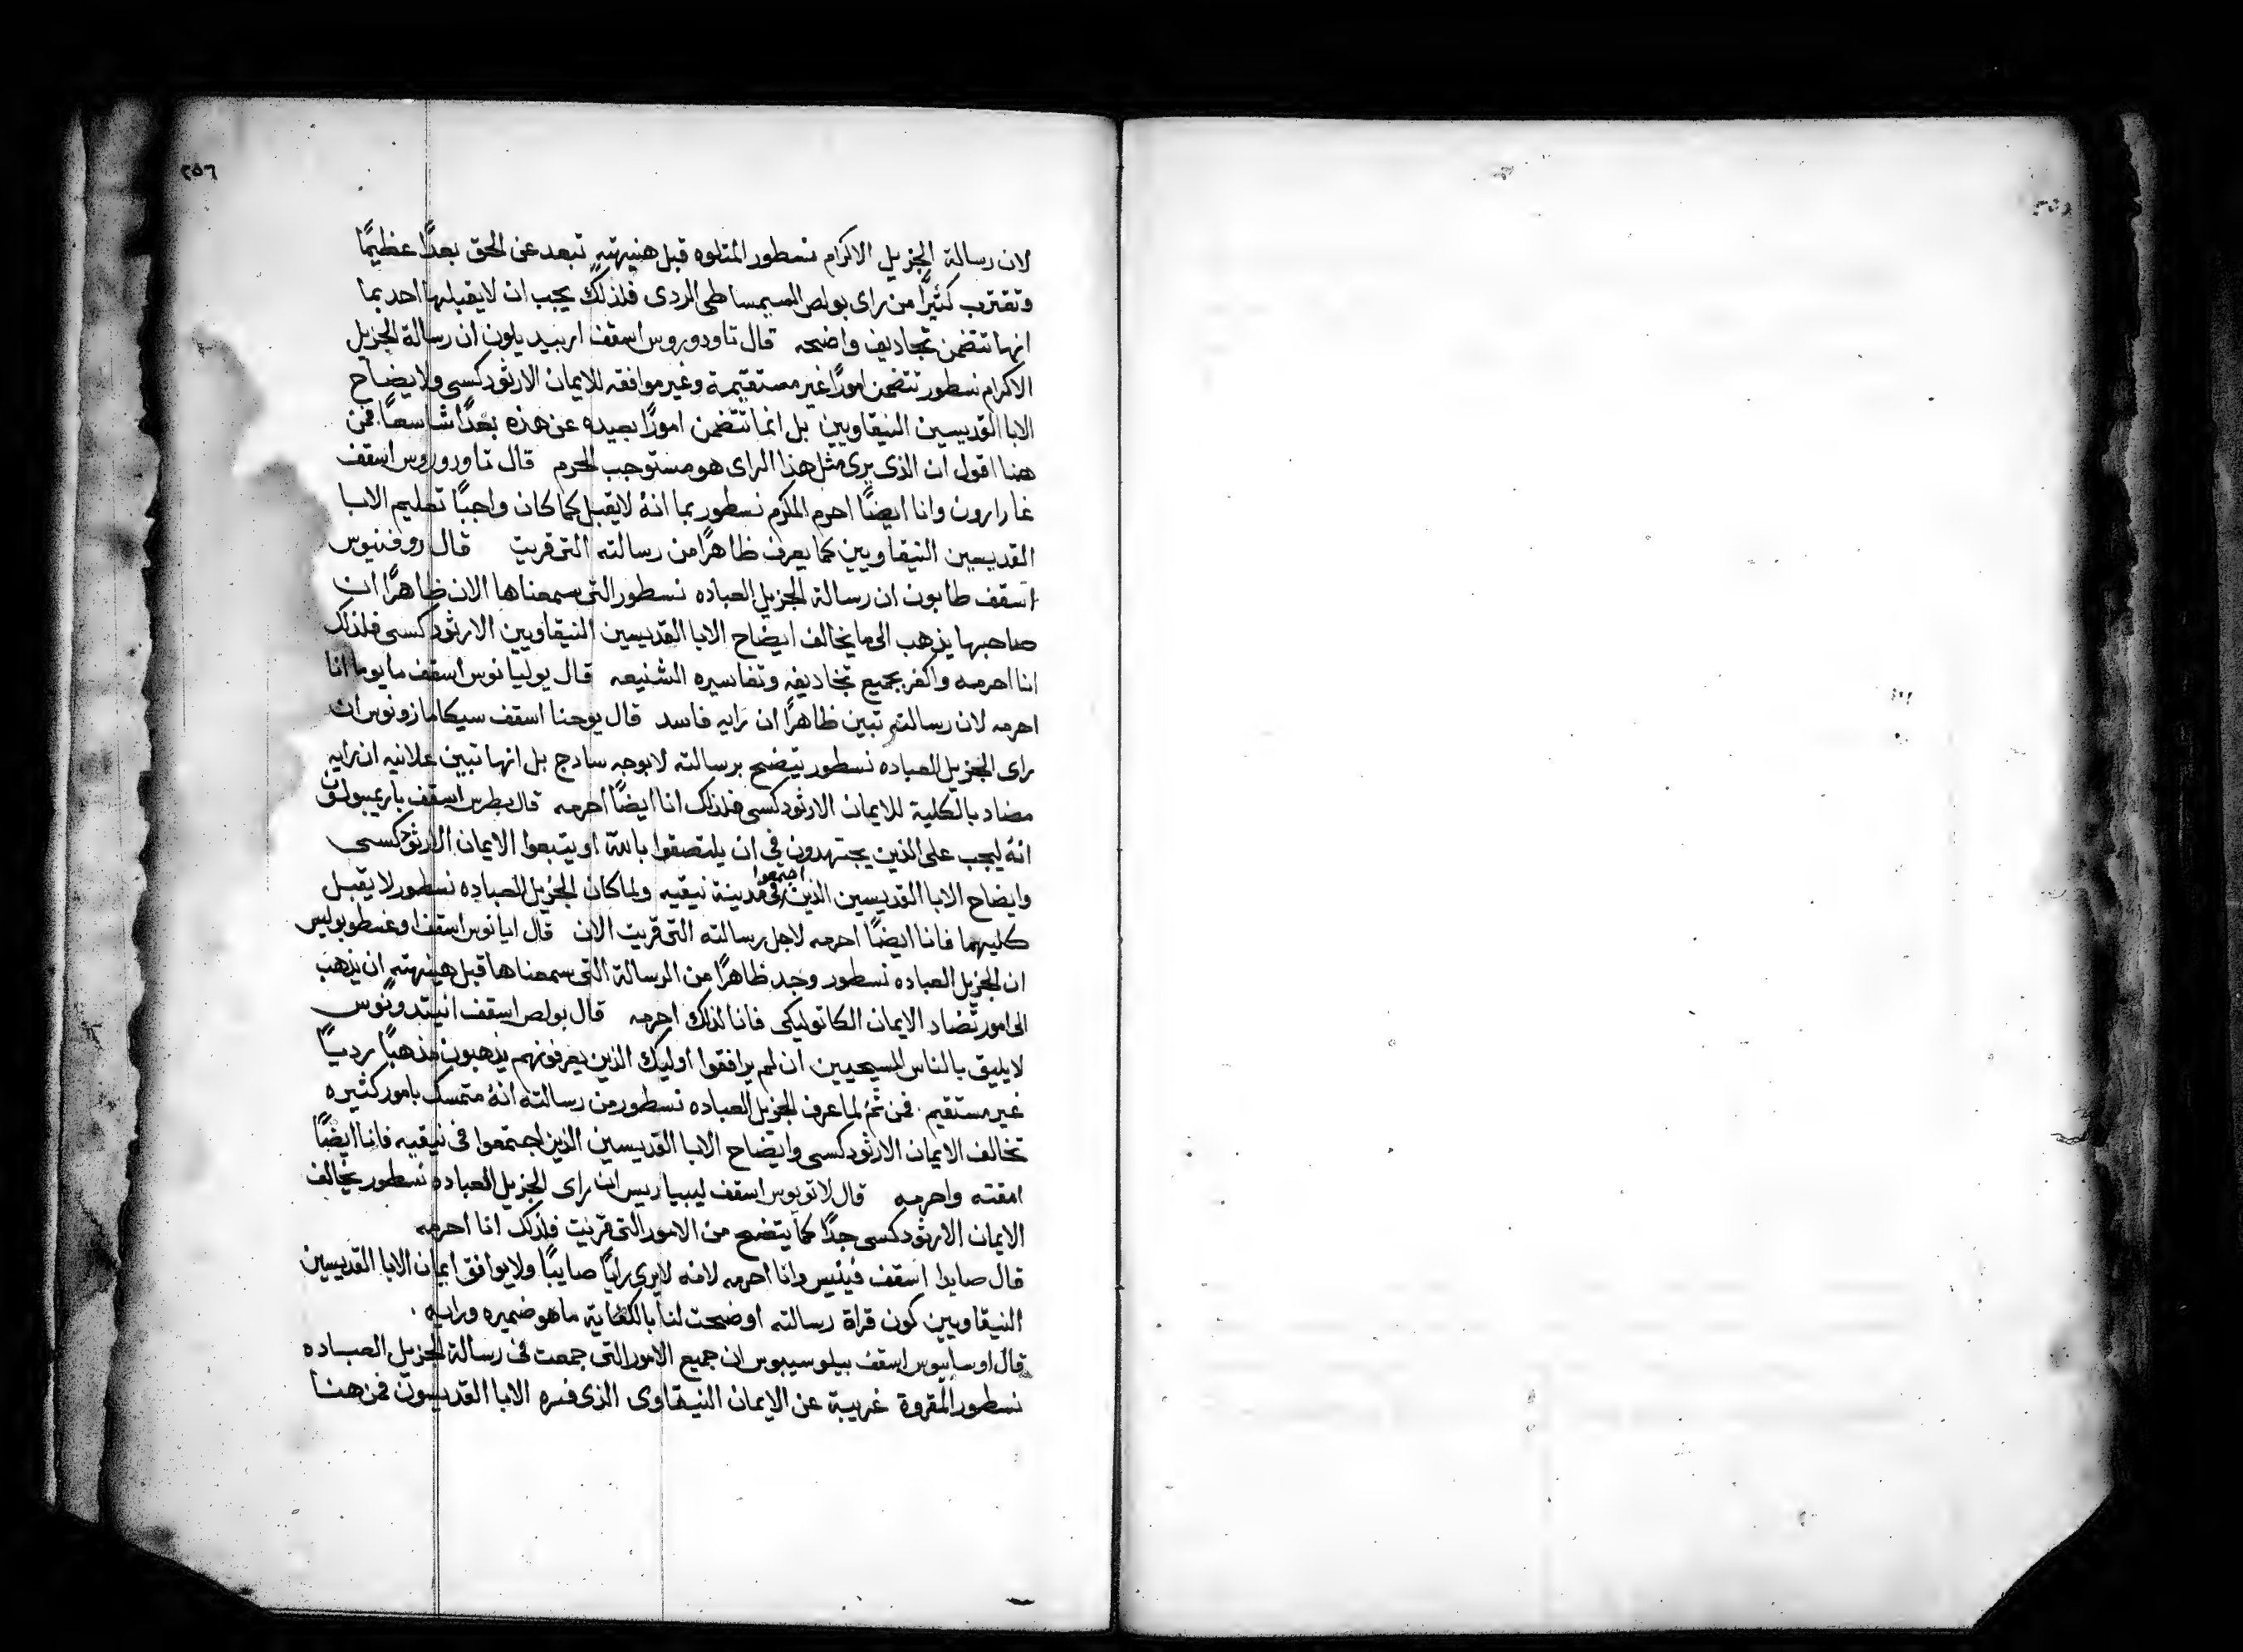 ٢٥٦
لان رسالة الجزيل الاكرام نسطور المتلوه قبل هنيهته تبعد عن الحق بعدًا عظيمًا
وتقترب كثيرًا من راى بولص السيمساطى الردى فلذلك يجب ان لا يقبلها احد بما
انها تتضمن تجاديف واضحه قال تاودوروس اسقف اربيديلون ان رسالة الجزيل
الاكرام نسطور تتضمن امورًا غير مستقيمة وغير موافقه للايمان الارثودكسى ولايضاح
الابا القديسين النيقاويين بل انما تتضمن امورًا بعيده عن هذه بعدًا شاسعًا. فمن
هنا اقول ان الذى يرى مثل هذا الراى هو مستوجب الحرم قال تاودوروس اسقف
غارارون وانا ايضًا احرم المكرم نسطور بما انهُ لا يقبل كما كان واجبًا تعليم الابا
القديسين النيقاويين كما يعرف ظاهرًا من رسالته التى قريت قال روفنيوس
اسقف طابون ان رسالة الجزيل العباده نسطور التى سمعناها الان ظاهرًا ان
صاحبها يذهب الى ما يخالف ايضاح الابا القديسين النيقاويين الارثودكسى فلذلك
انا احرمه واكفر بجميع تجاديفه وتفاسيره الشنيعه قال يوليانوس اسقف مايوما انا
احرمه لان رسالته تبين ظاهرًا ان رايه فاسد قال يوحنا اسقف سيكامازونوس ان
راى الجزيل العباده نسطور يتضح برسالته لا بوجه سادج بل انها تبين علانيه ان رايه
مضاد بالكلية للايمان الارثودكسى فلذلك انا ايضًا احرمه قال بطرس اسقف باريمبولون
انهُ ليجب على الذين يجتهدون فى ان يلتصقوا بالله او يتبعوا الايمان الارثودكسى
وايضاح الابا القديسين الذين اجتمعوا فى مدينة نيقيه ولما كان الجزيل العباده نسطور لا يقبل
كليهما فانا ايضًا احرمه لاجل رسالته التى قريت الان قال ايانوس اسقف اوغسطوبوليس
ان الجزيل العباده نسطور وجد ظاهرًا من الرسالة التى سمعناها قبل هينهته ان يذهب
الى امور تضاد الايمان الكاتوليكى فانا لذلك احرمه قال بولص اسقف انيتدونوس
لا يليق بالناس المسيحيين ان لم يرافقوا اوليك الذين يعرفونهم يذهبون مذهبًا رديًا
غير مستقيم. فمن ثمَّ لما عرف الجزيل العباده نسطور من رسالته انهُ متمسك بامور كثيره
تخالف الايمان الارثودكسى وايضاح الابا القديسين الذين اجتمعوا فى نيقيه فانا ايضًا
امقته واحرمه قال لاتويوس اسقف ليبيا ريس ان راى الجزيل العباده نسطور يخالف
الايمان الارثودكسى جدًا كما يتضح من الامور التى قريت فلذلك انا احرمه
قال صايدا اسقف فينيس وانا احرمه لانه لا يرى رايًا صايبًا ولا يوافق ايمان الابا القديسين
النيقاويين كون قراة رسالته اوضحت لنا بالكفاية ما هو ضميره ورايه.
قال اوسابيوس اسقف بيلوسيبوس ان جميع الامور التى جمعت فى رسالة الجزيل العباده
نسطور المقروة غريبة عن الايمان النيقاوى الذى فسره الابا القديسون فمن هنا